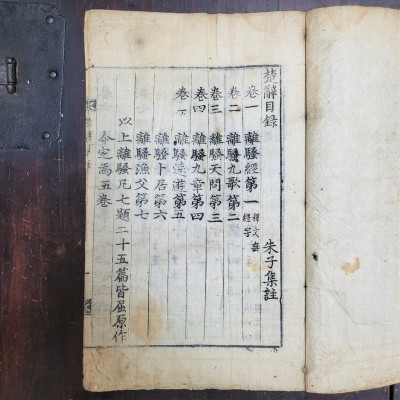 楚辭目錄
朱子集註
卷一 離騷經第一 釋文無經字
卷二 離騷九歌第二
卷三 離騷天問第三
卷四 離騷九章第四
卷五 離騷遠遊第五
離騷卜居第六
離騷漁父第七
以上離騷凡七題二十五篇皆屈原作
今定爲五卷